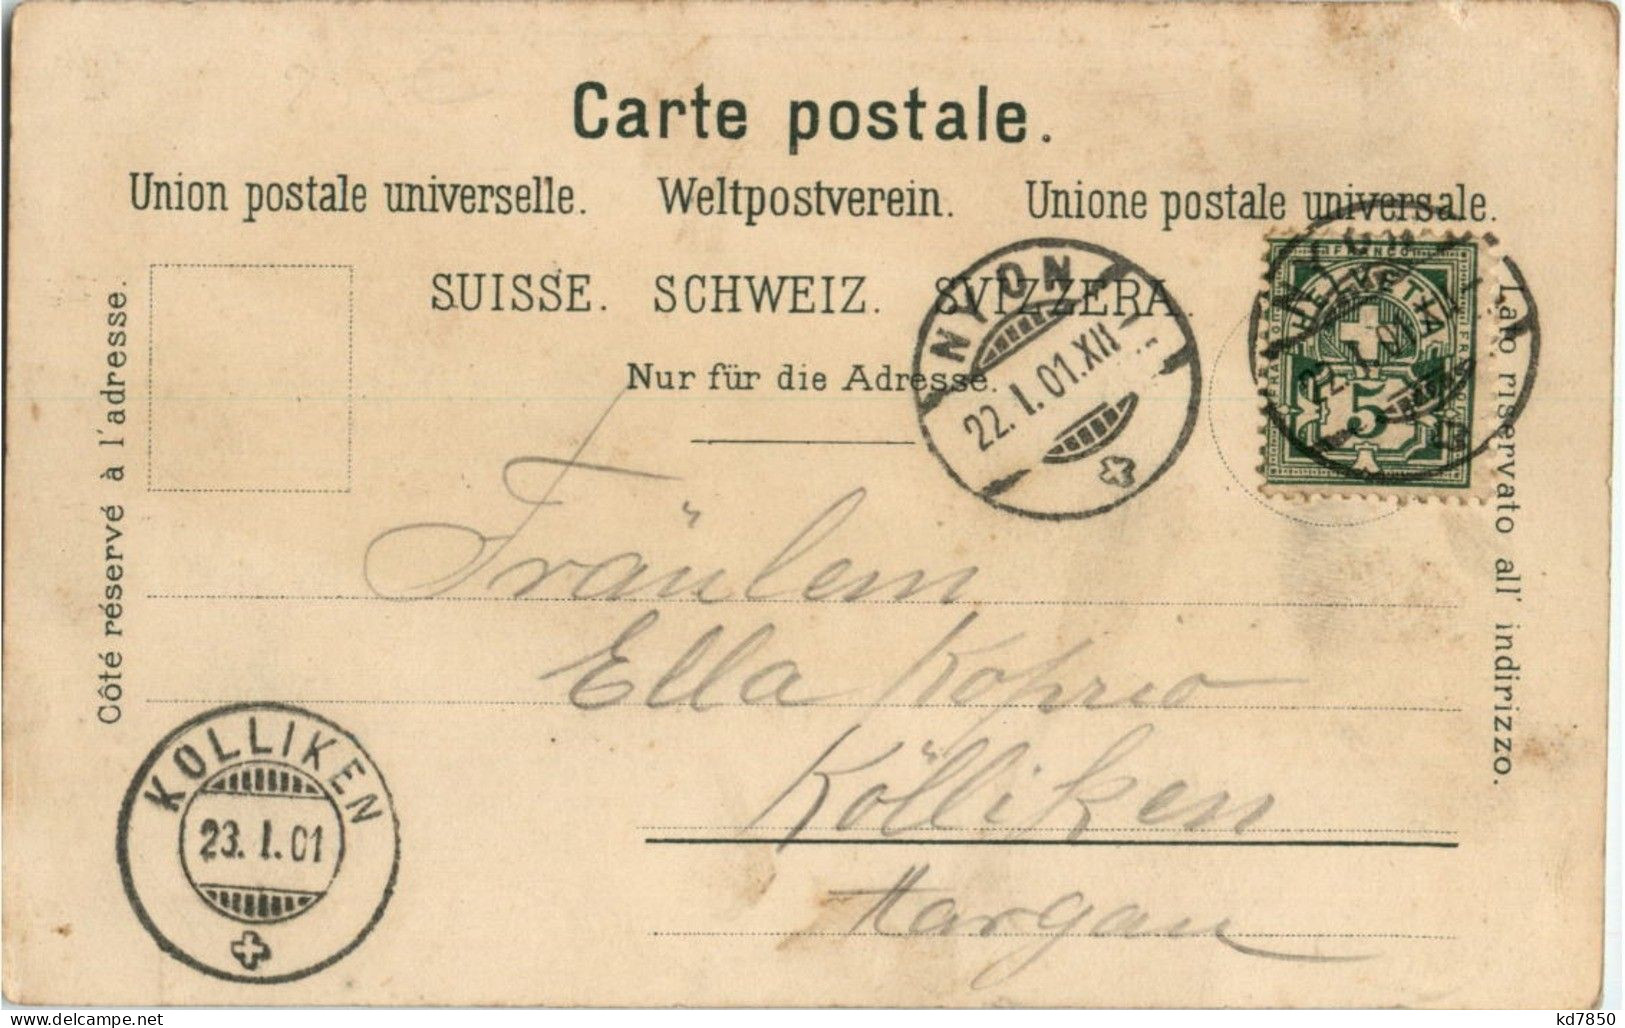 Carte postale.
Union postale universelle. Weltpostverein. Unione postale universale.
SUISSE. SCHWEIZ. SVIZZERA.
Nur für die Adresse.
Côté réservé à l'adresse.
Lato riservato all' indirizzo.
NYON
22.I.01.XII
FRANCO
HELVETIA
22.I.01
5
Fräulein
Ella Koprio
Kölliken
Aargau
KOLLIKEN
23.I.01
delcampe.net
kd7850